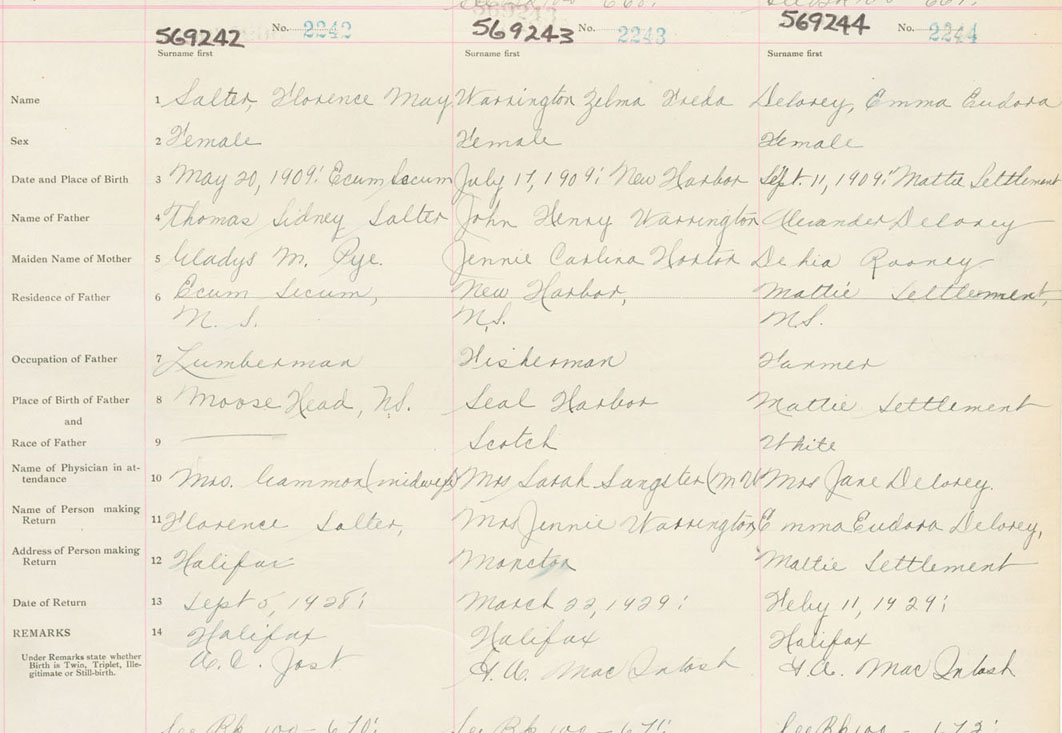 569242 No. 2242 569243 No. 2243 569244 No. 2244
Surname first Surname first Surname first
Name 1 Salter, Florence May Warrington Zelma Freda Delorey, Emma Eudora
Sex 2 Female Female Female
Date and Place of Birth 3 May 20, 1909: Ecum Secum July 17, 1909: New Harbor Sept. 11, 1909: Mattie Settlement
Name of Father 4 Thomas Sidney Salter John Henry Warrington Alexander Delorey
Maiden Name of Mother 5 Gladys M. Pye. Jennie Carlina Horton Rooney
Residence of Father 6 Ecum Secum, New Harbor, Mattie Settlement,
N. S. N.S. N.S.
Occupation of Father 7 Lumberman Fisherman Farmer
Place of Birth of Father 8 Moose Head, N.S. Seal Harbor Mattie Settlement
and
Race of Father 9 Scotch White
Name of Physician in at-
tendance 10 Mrs. Gammon (midwife) Mrs Sarah Sangster (M W Mrs Jane Delorey.
Name of Person making
Return 11 Florence Salter, Mrs Jennie Warrington Emma Eudora Delorey,
Address of Person making
Return 12 Halifax Moncton Mattie Settlement
Date of Return 13 Sept 5, 1928: March 22, 1929: Feby 11, 1929:
REMARKS 14 Halifax Halifax Halifax
Under Remarks state whether
Birth is Twin, Triplet, Ille-
gitimate or Still-birth.
A. C. Jost H. A. MacIntosh H. A. MacIntosh
See Bk 100 - 670: See Bk 100 - 671: See Bk 100 - 672: